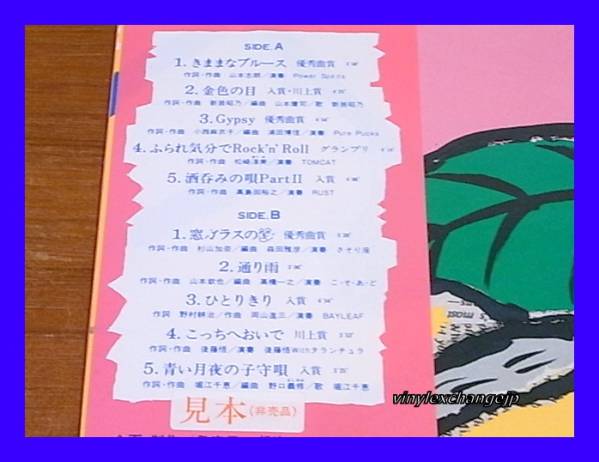 SIDE. A
1. きままなブルース 優秀曲賞
作詞・作曲 山本志朗／演奏 Power Spots
2. 金色の目 入賞・川上賞
作詞・作曲 新居昭乃／編曲 山本健司／歌 新居昭乃
3. Gypsy 優秀曲賞
作詞・作曲 小西麻衣子／編曲 浦田博信／演奏 Pure Pucks
4. ふられ気分でRock'n' Roll グランプリ
作詞・作曲 松崎淳美／演奏 TOMCAT
5. 酒呑みの唄PartII 入賞
作詞・作曲 高島田裕之／演奏 RUST
SIDE. B
1. 窓ガラスの 優秀曲賞
作詞・作曲 杉山加奈／編曲 森田雅彦／演奏 さそり座
2. 通り雨
作詞・作曲 山本欽也／編曲 高橋一之／演奏 こ・そ・あ・ど
3. ひとりきり 入賞
作詞 野村耕治／作曲 岡山進三／演奏 BAYLEAF
4. こっちへおいで 川上賞
作詞・作曲 後藤悟／演奏 後藤悟Withタランチュラ
5. 青い月夜の子守唄 入賞
作詞・作曲 堀江千恵／編曲 野口義修／歌 堀江千恵
見本(非売品)
most
vinylexchangejp